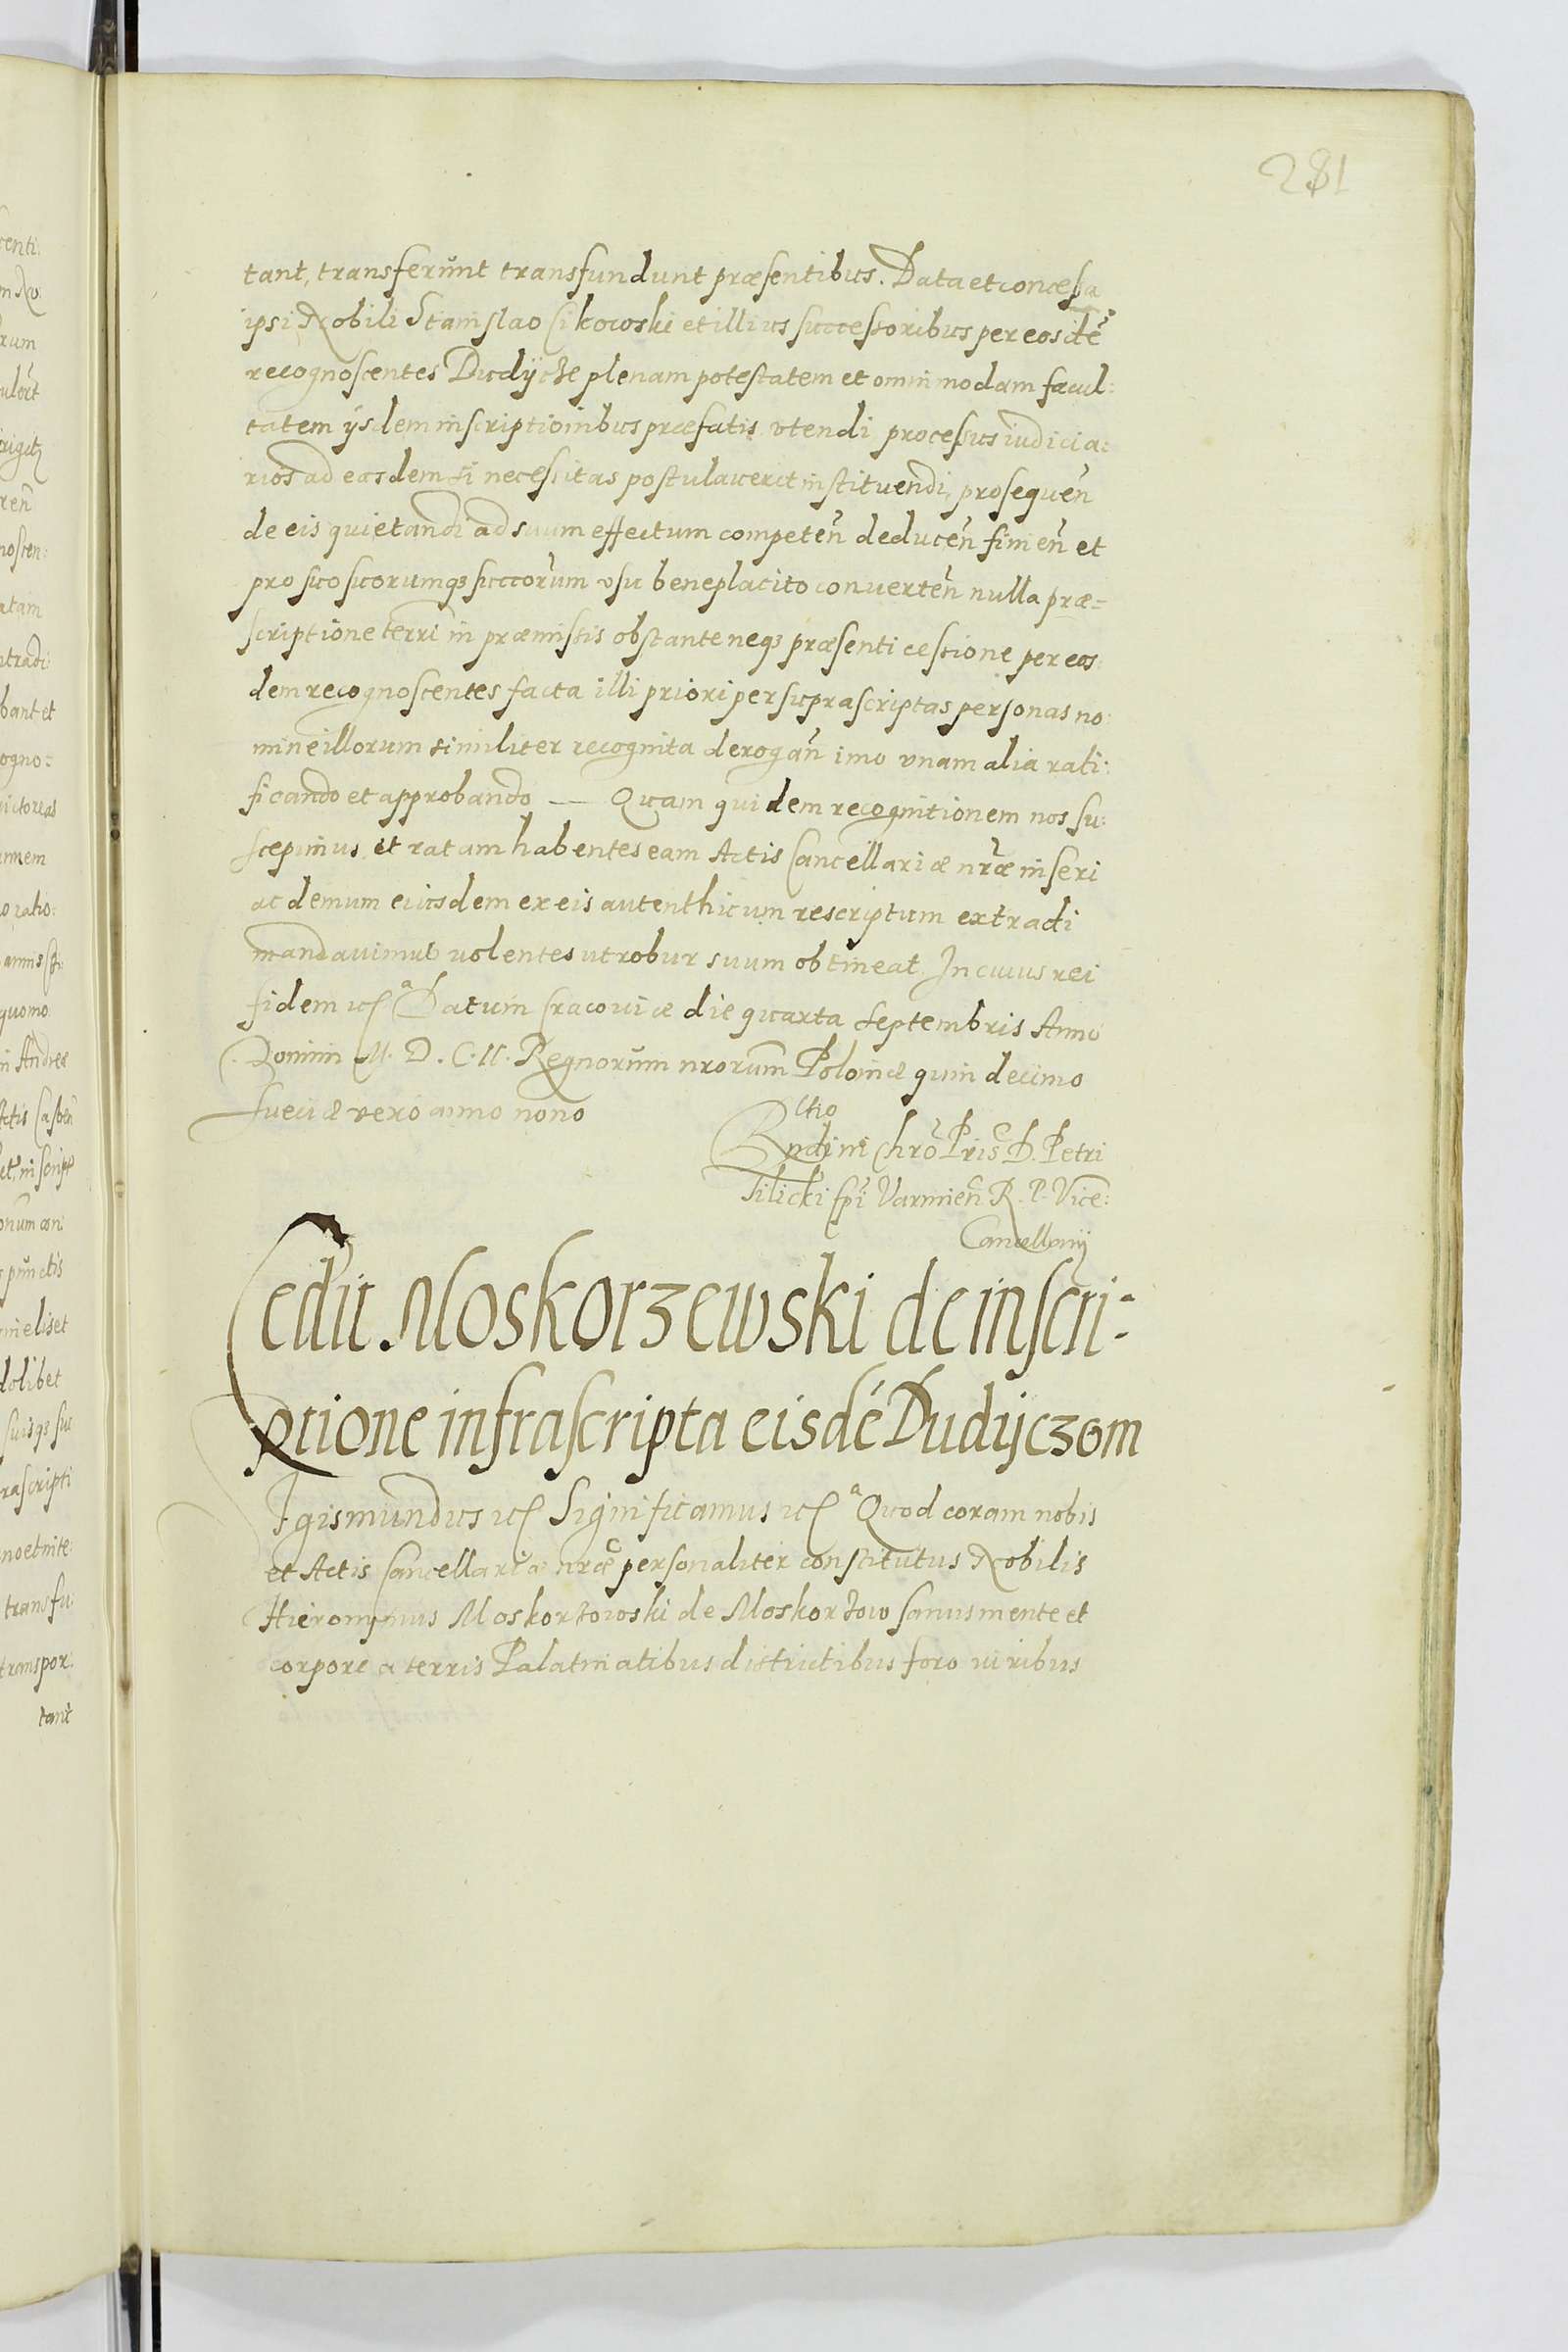 281
tant, transferunt transfundunt præsentibus. Data et concessa
ipsi Nobili Stanislao Cikowski et illius successoribus per eosdẽ
recognoscentes Dudÿcze plenam potestatem et omnimodam facul:
tatem ÿsdem inscriptionibus præfatis vtendi processus iudicia:
rios ad easdem si necessitas postulauerit instituendi, prosequeñ
de eis quietandi ad suum effectum competeñ deduceñ finieñ et
pro suo suorumq3 succorum vsu beneplacito conuerteñ nulla præ=
scriptione terri in præmissis obstante neq3 præsenti cessione per eos
dem recognoscentes facta illi priori per suprascriptas personas no:
mine illorum similiter recognita derogañ imo vnam alia rati:
ficando et approbando — Quam quidem recognitionem nos su:
scepimus et ratam habentes eam Actis Cancellariæ nræ inseri
ac demum eiusdem ex eis autenthicum rescriptum extradi
mandauimus volentes ut robur suum obtineat. In cuius rei
fidem etc Datum Cracouiæ die quarta Septembris Anno
Domini M. D. C. II. Regnorum nrorum Poloniæ quindecimo
Sueciæ vero anno nono
Rndi in Chro Pris D. Petri
Tilicki Epi Varmieñ R. P. Vice:
Cancellarij
Cedit Moskorzewski de inscri-
ptione infrascripta eisdé Dudijczom
Igismundus etc Significamus etc Quod coram nobis
et Actis Cancellariæ nræ personaliter constitutus Nobilis
Hieronymus Moskorzowski de Moskorzow sanus mente et
corpore a terris Palatinatibus districtibus foro iuribus